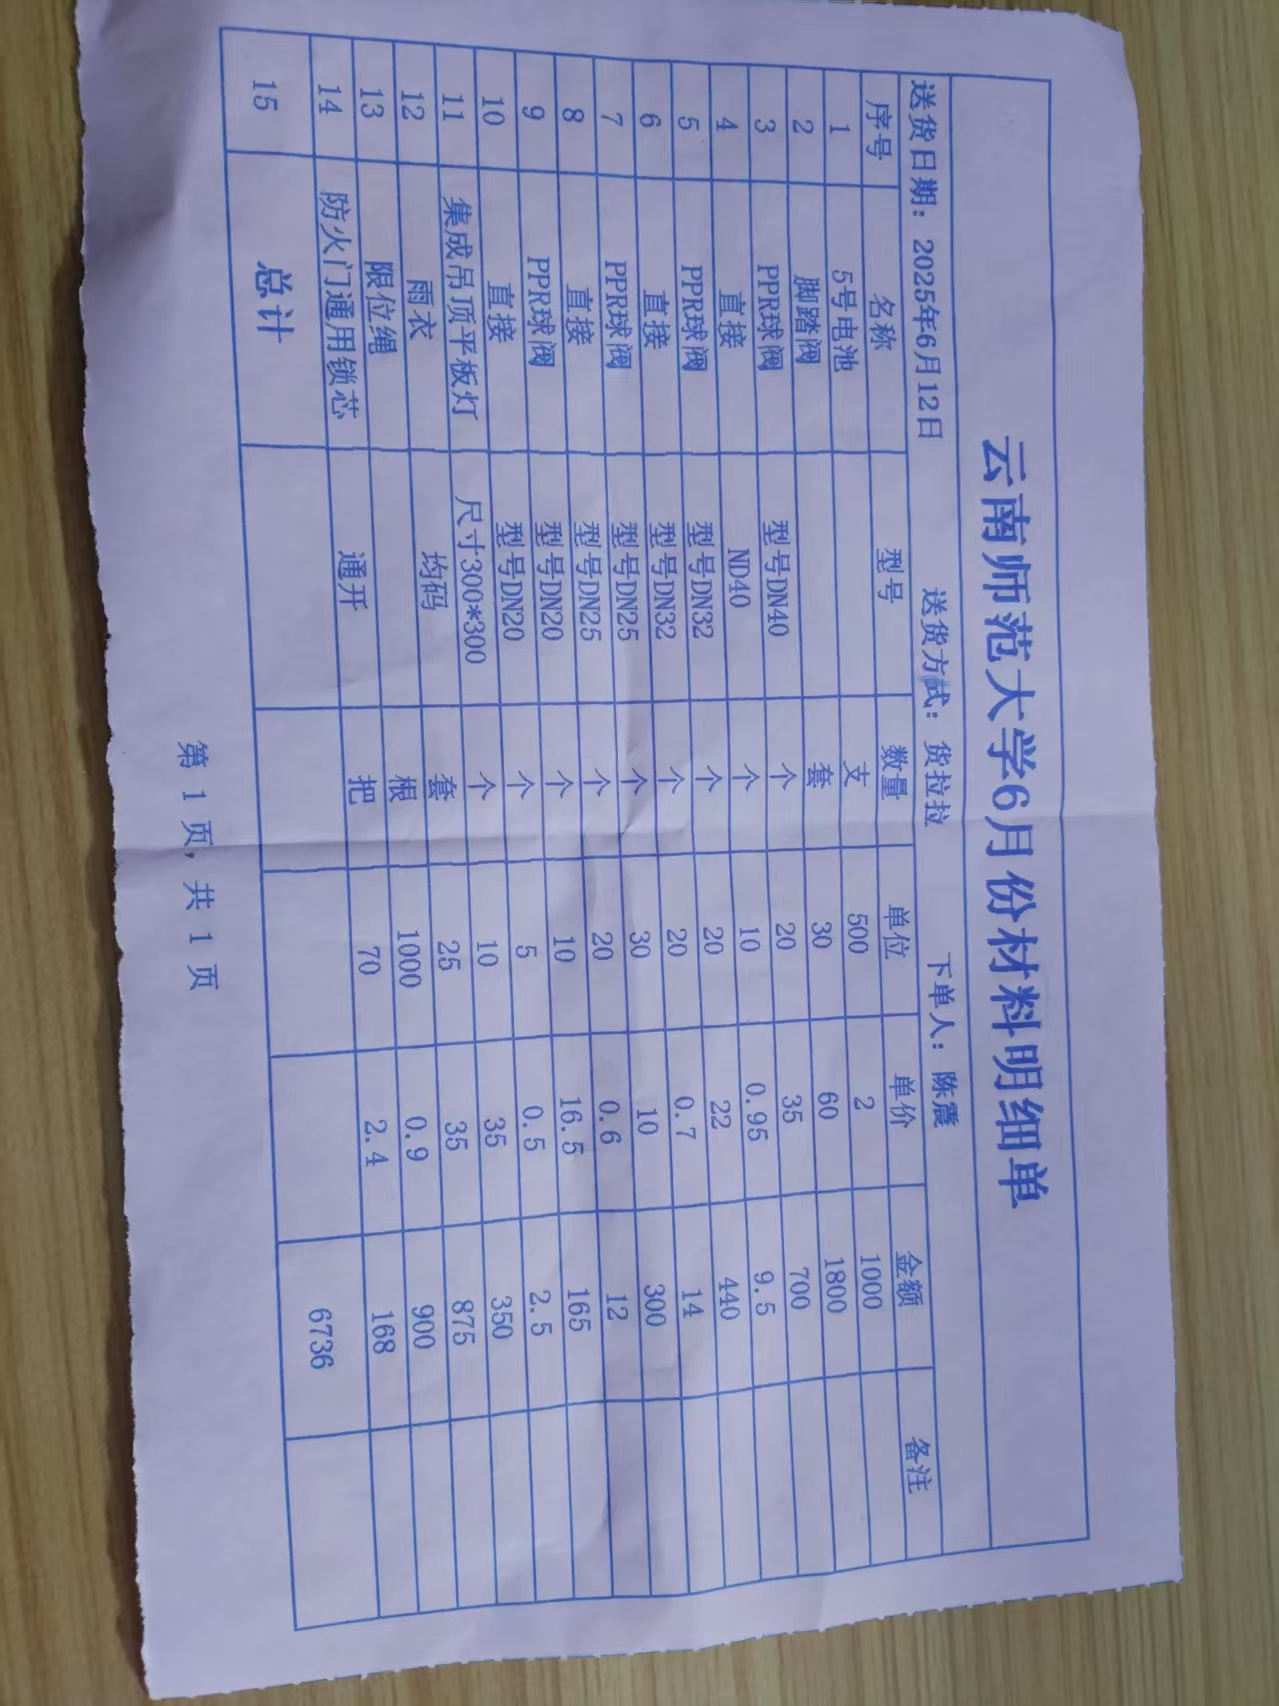 云南师范大学6月份材料明细单
送货日期：2025年6月12日 送货方式：货拉拉 下单人：陈震
序号 名称 型号 数量 单位 单价 金额 备注
1 5号电池 支 500 2 1000
2 脚踏阀 套 30 60 1800
3 PPR球阀 型号DN40 个 20 35 700
4 直接 ND40 个 10 0.95 9.5
5 PPR球阀 型号DN32 个 20 22 440
6 直接 型号DN32 个 20 0.7 14
7 PPR球阀 型号DN25 个 30 10 300
8 直接 型号DN25 个 20 0.6 12
9 PPR球阀 型号DN20 个 10 16.5 165
10 直接 型号DN20 个 5 0.5 2.5
11 集成吊顶平板灯 尺寸300*300 个 10 35 350
12 雨衣 均码 套 25 35 875
13 限位绳 根 1000 0.9 900
14 防火门通用锁芯 通开 把 70 2.4 168
15 总计 6736
第 1 页，共 1 页